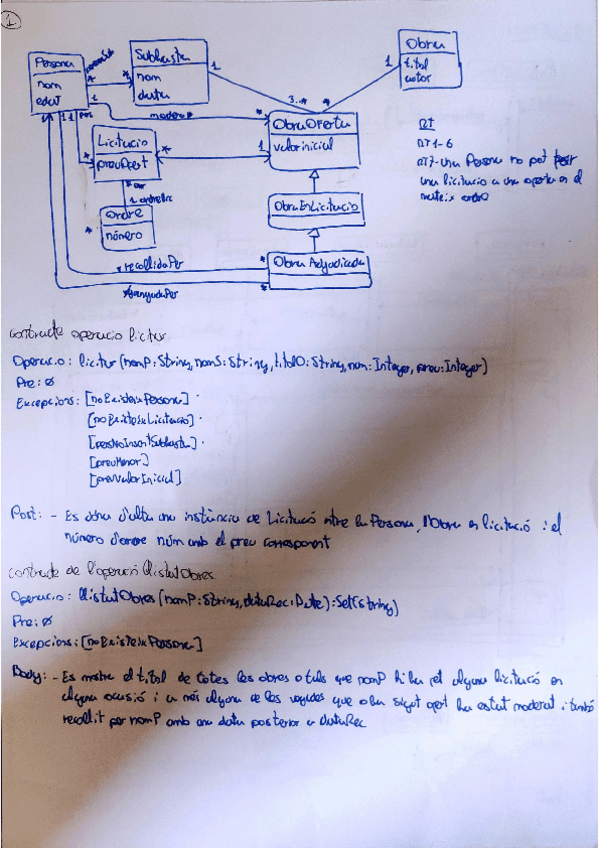 1
Persona
nom
edat
Subhasta
nom
data
Obra
títol
autor
1
1
*
*
3..*
*
1
moderaP
*
ObraOferta
valorinicial
Licitacio
preuOfert
*
1
1 1
per
RT
RT1-6
RT7-Una Persona no pot fer
una licitacio a una oferta en el
mateix ordre
ordre
número
*
ObraEnLicitacio
ObraAdjudicada
* recollidaPer
*
*
*guanyadaPer
contracte operacio licitar
Operacio: licitar(nomP:String, nomS:String, titolO:String, num:Integer, preu:Integer)
Pre: ø
Excepcions: [noExisteixPersona]
[noExisteixLicitació]
[preuMenor]
[preuValorInicial]
Post: - Es dóna d'alta una instància de Licitació entre la Persona, l'Obra en licitació i el
número d'ordre núm amb el preu corresponent
contracte de l'operació llistatObres
Operacio: llistatObres(nomP:String, dataRec:Date):Set(String)
Pre: ø
Excepcions: [noExisteixPersona]
Body: - Es mostra el títol de totes les obres tals que nomP hi ha fet alguna licitació en
alguna ocasió i a més alguna de les vegades que ha sigut ha estat moderat i també
recollit per nomP amb una data posterior a dataRec